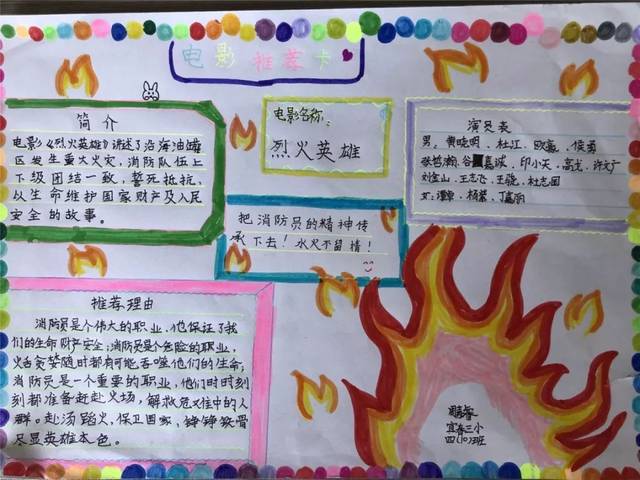 电影推荐卡
简介
电影《烈火英雄》讲述了沿海油罐
区发生重大火灾，消防队伍上
下级团结一致，誓死抵抗，
以生命维护国家财产及人民
安全的故事。
电影名称：
烈火英雄
演员表
男：黄晓明、杜江、欧豪、侯勇
张哲瀚、谷嘉诚、印小天、高戈、许文广
刘金山、王志飞、王骁、杜志国
女：谭卓、杨紫、丁嘉丽
把消防员的精神传
承下去！水火不留情！
推荐理由
消防员是个伟大的职业，他保证了我
们的生命财产安全；消防员是个危险的职业，
火舌贪婪随时都有可能吞噬他们的生命；
消防员是一个重要的职业，他们时时刻
刻都准备赶赴火场，解救危难中的人
群。赴汤蹈火，保卫国家，铮铮铁骨
尽显英雄本色。
宜春三小
四(10)班